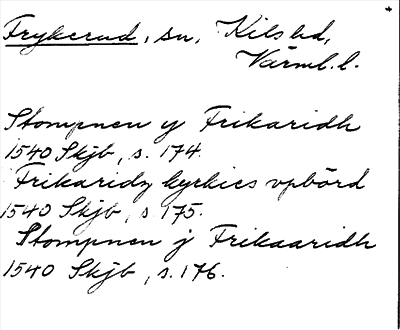 Frykerud, sn, Kils hd,
Värml. l.
Stompnen y Frikaridh
1540 Skjb, s. 174.
Frikaridz kyrkies vpbörd
1540 Skjb, s 175.
Stompnen j Frikaaridh
1540 Skjb, s. 176.